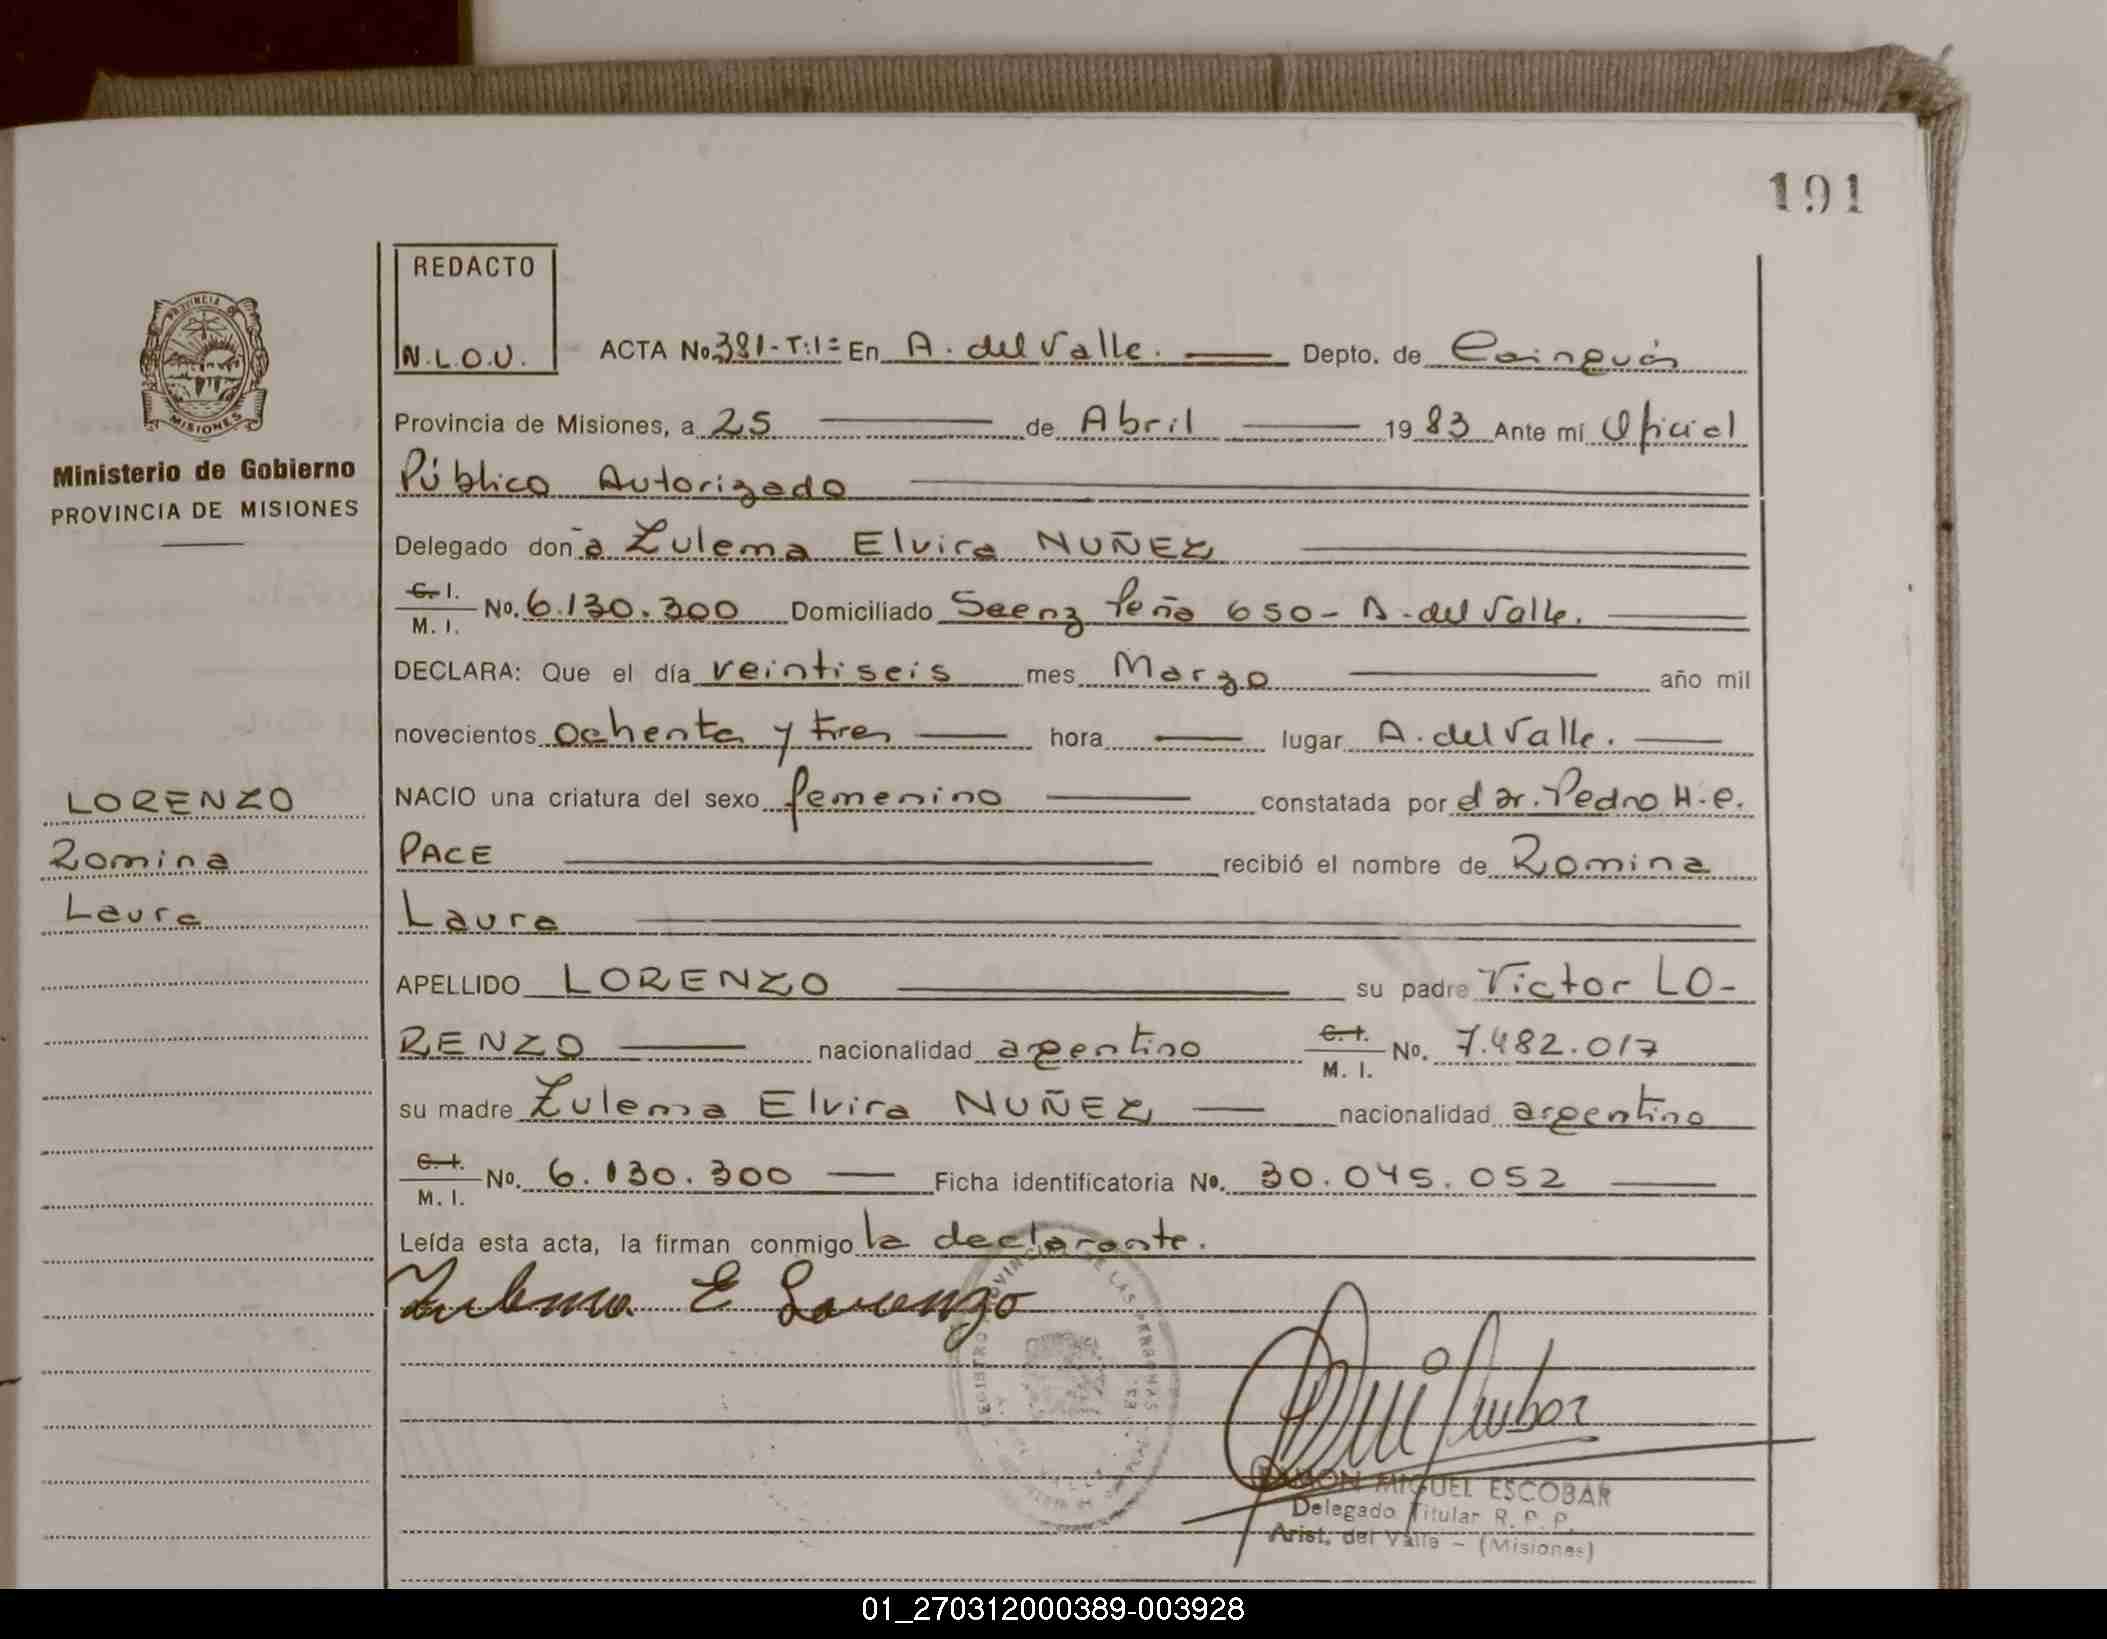 191
REDACTO
N.L.O.U.
ACTA No 381-T:1= En A. del Valle. Depto. de Cainguás
PROVINCIA DE
MISIONES
Ministerio de Gobierno
PROVINCIA DE MISIONES
Provincia de Misiones, a 25 de Abril 1983 Ante mí Oficial
Público Autorizado
Delegado doña Zulema Elvira NUÑEZ
C. I.
M. I. No. 6.130.300 Domiciliado Saenz Peña 650 - A. del Valle.
DECLARA: Que el día veintiseis mes Marzo año mil
novecientos ochenta y tres hora lugar A. del Valle.
LORENZO
Romina
Laura
NACIO una criatura del sexo femenino constatada por el Dr. Pedro H. C.
PACE recibió el nombre de Romina
Laura
APELLIDO LORENZO su padre Victor LO-
RENZO nacionalidad argentino C. I.
M. I. No. 7.482.017
su madre Zulema Elvira NUÑEZ nacionalidad argentino
C. I.
M. I. No. 6.130.300 Ficha identificatoria No. 30.045.052
Leída esta acta, la firman conmigo la declarante.
Zulema E Lorenzo
RAMON MIGUEL ESCOBAR
Delegado Titular R. P. P.
Arist. del Valle - (Misiones)
01_270312000389-003928